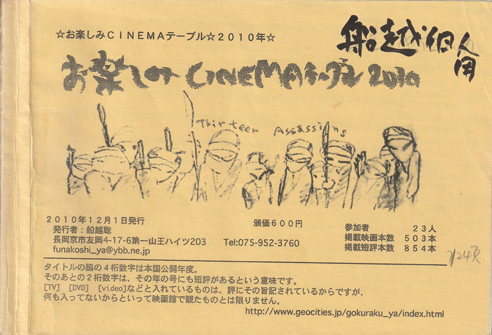 ☆お楽しみCINEMAテーブル☆2010年☆
船越個人用
お楽しみCINEMAテーブル2010
Thirteen Assassins
2010年12月1日発行
発行者：船越聡
長岡京市友岡4-17-6第一山王ハイツ203
funakoshi_ya@ybb.ne.jp
頒価600円
Tel:075-952-3760
参加者 23人
掲載映画本数 503本
掲載短評本数 854本
タイトルの脇の4桁数字は本国公開年度。
そのあとの2桁数字は、その年の号にも短評があるという意味です。
[TV] [DVD] [video]などと入れているものは、評にその旨記されているからですが、
何も入ってないからといって映画館で観たものとは限りません。
http://www.geocities.jp/gokuraku_ya/index.html